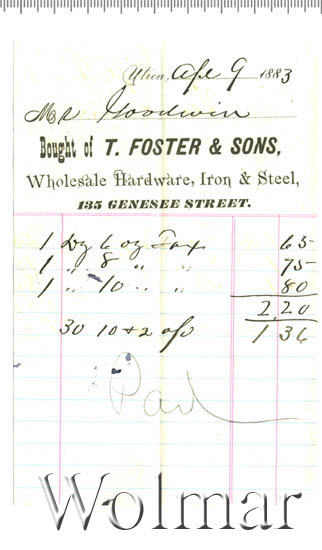 Utica, Apl 9 1883
Mr Goodwin
Bought of T. FOSTER & SONS,
Wholesale Hardware, Iron & Steel,
135 GENESEE STREET.
1 Dz 6 oz Tax 65
1 " 8 " " 75
1 " 10 " " 80
2.20
30 10 & 2 1 36
Paid
Wolmar